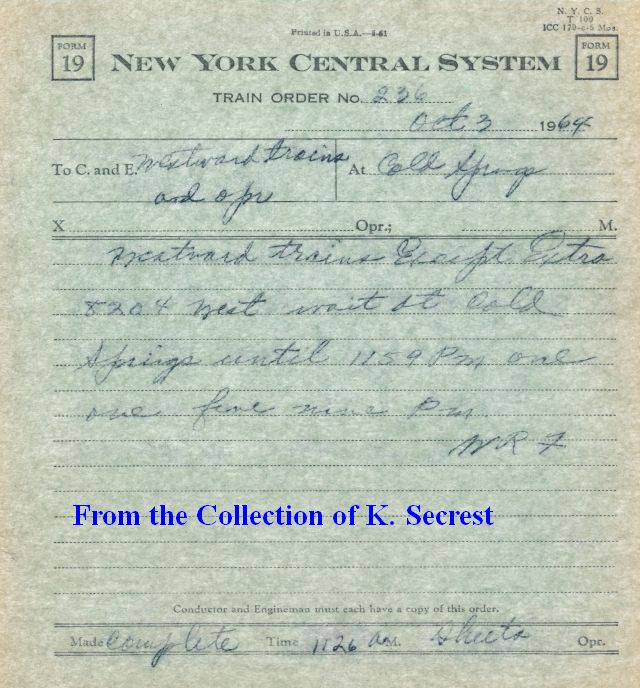 N. Y. C. S.
T 100
ICC 170-c-6 Mos.
Printed in U.S.A.—8-61
FORM 19
NEW YORK CENTRAL SYSTEM
FORM 19
TRAIN ORDER No. 236
Oct 3 1964
To C. and E. Westward trains At Cold Springs
and opr
X Opr.; M.
Westward trains Except Extra
8204 West wait at Cold
Springs until 1159 Pm one
one five nine Pm
W R F
From the Collection of K. Secrest
Conductor and Engineman must each have a copy of this order.
Made Complete Time 1126 a M. Sheets Opr.